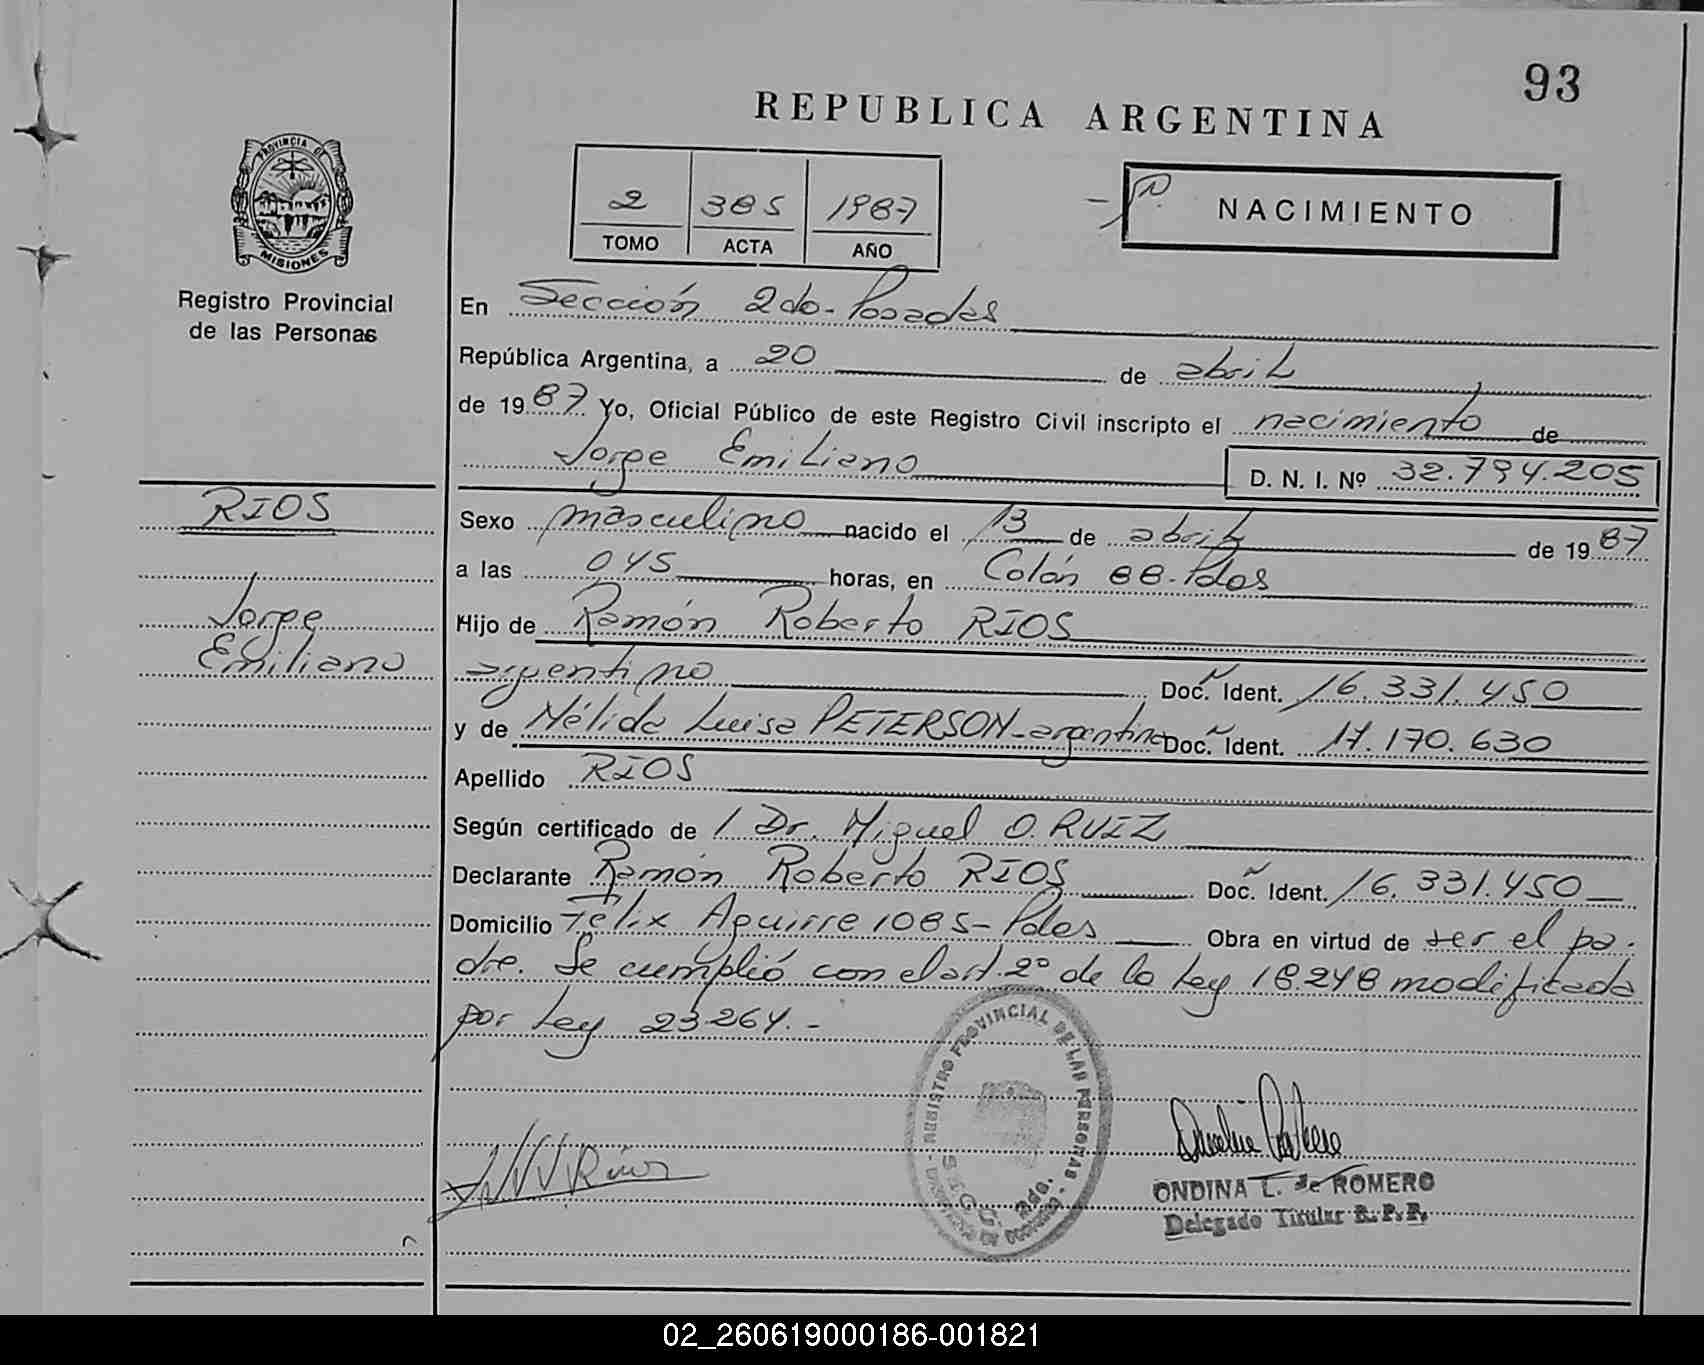 93
REPUBLICA ARGENTINA
PROVINCIA DE
MISIONES
Registro Provincial
de las Personas
2 385 1987
TOMO ACTA AÑO
NACIMIENTO
En Sección 2do - Posadas
República Argentina, a 20 de abril
de 1987 Yo, Oficial Público de este Registro Civil inscripto el nacimiento de
Jorge Emiliano D. N. I. Nº 32.794.205
RIOS
Jorge
Emiliano
Sexo masculino nacido el 13 de abril de 1987
a las 045 horas, en Colón 88 - Pdas
Hijo de Ramón Roberto RIOS
argentino Doc. Ident. 16.331.450
y de Nélida Luisa PETERSON - argentina Doc. Ident. 17.170.630
Apellido RIOS
Según certificado de Dr. Miguel O. RUIZ
Declarante Ramón Roberto RIOS Doc. Ident. 16.331.450
Domicilio Félix Aguirre 1085 - Pdas Obra en virtud de ser el pa-
dre. Se cumplió con el art. 2º de la Ley 18.248 modificada
por Ley 23264.-
REGISTRO PROVINCIAL DE LAS PERSONAS
SECC. 2da.
Rios
ONDINA L. de ROMERO
Delegado Titular R. P. P.
02_260619000186-001821